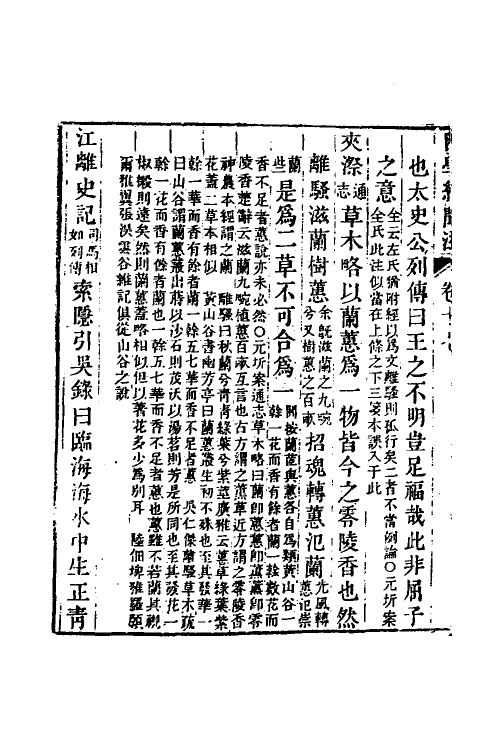 也太史公列傳曰王之不明豈足福哉此非屈子
之意全云左氏猶附經以爲文離騷則孤行矣二者不當例論〇元圻案
全氏此注似當在上條之下三箋本誤入于此
夾漈通志草木略以蘭蕙爲一物皆今之零陵香也然
離騷滋蘭樹蕙余既滋蘭之九畹
兮又樹蕙之百畝招魂轉蕙氾蘭光風轉
蕙氾崇
蘭些是爲二草不可合爲一閻按蘭茝與蕙各自爲類黃山谷一
榦一花而香有餘者蘭一榦數花而
香不足者蕙說亦未必然〇元圻案通志草木略曰蘭卽蕙蕙卽薰薰卽零
陵香楚辭云滋蘭九畹植蕙百畝互言也古方謂之薰草近方謂之零陵香
神農本經謂之蘭 離騷曰秋蘭兮靑靑綠葉兮紫莖廣雅云蕙草綠葉紫
花蓋二草本相似 黃山谷書幽芳亭曰蘭蕙叢生初不殊也至其發華一
榦一華而香有餘者蘭一榦五七華而香不足者蕙 吳仁傑離騷草木疏
曰山谷謂蘭蕙叢出蒔以沙石則茂沃以湯茗則芳是所同也至其發花一
榦一花而香有餘者蘭也一榦五七華而香不足者蕙也蕙雖不若蘭其視
椒榝則遠矣然則蘭蕙蓋略相似但以著花多少爲別耳 陸佃埤雅羅願
爾雅翼張淏雲谷雜記俱從山谷之說
江離史記司馬相
如列傳索隱引吳錄曰臨海海水中生正靑